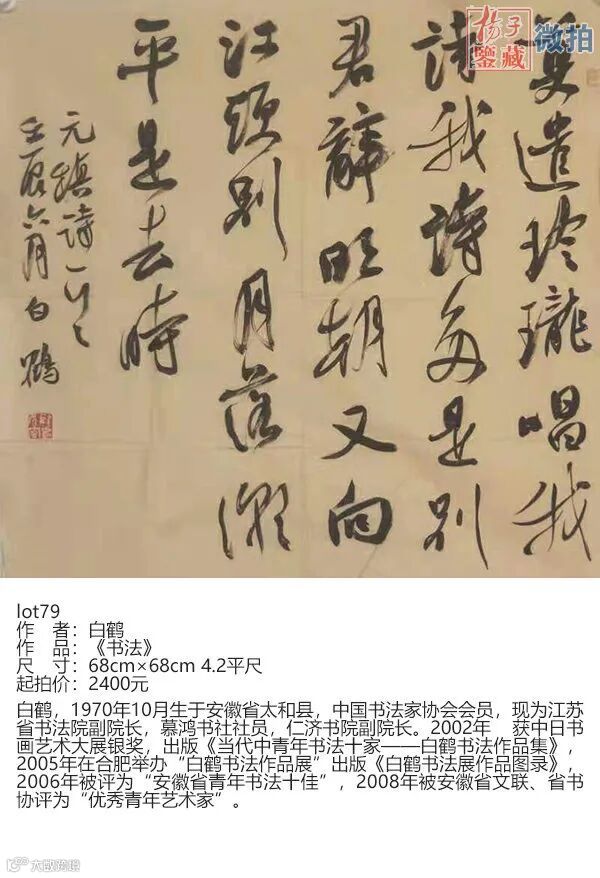 扬子
鑒藏
微拍
遣玲瓏唱我
詩我詩多是别
君辭明朝又向
江頭别月落潮
平是去時
元稹詩一首
壬辰六月白鶴
lot79
作　者：白鹤
作　品：《书法》
尺　寸：68cm×68cm 4.2平尺
起拍价：2400元
白鹤，1970年10月生于安徽省太和县，中国书法家协会会员，现为江苏
省书法院副院长，慕鸿书社社员，仁济书院副院长。2002年　获中日书
画艺术大展银奖，出版《当代中青年书法十家——白鹤书法作品集》，
2005年在合肥举办“白鹤书法作品展”出版《白鹤书法展作品图录》，
2006年被评为“安徽省青年书法十佳”，2008年被安徽省文联、省书
协评为“优秀青年艺术家”。
大数跨境